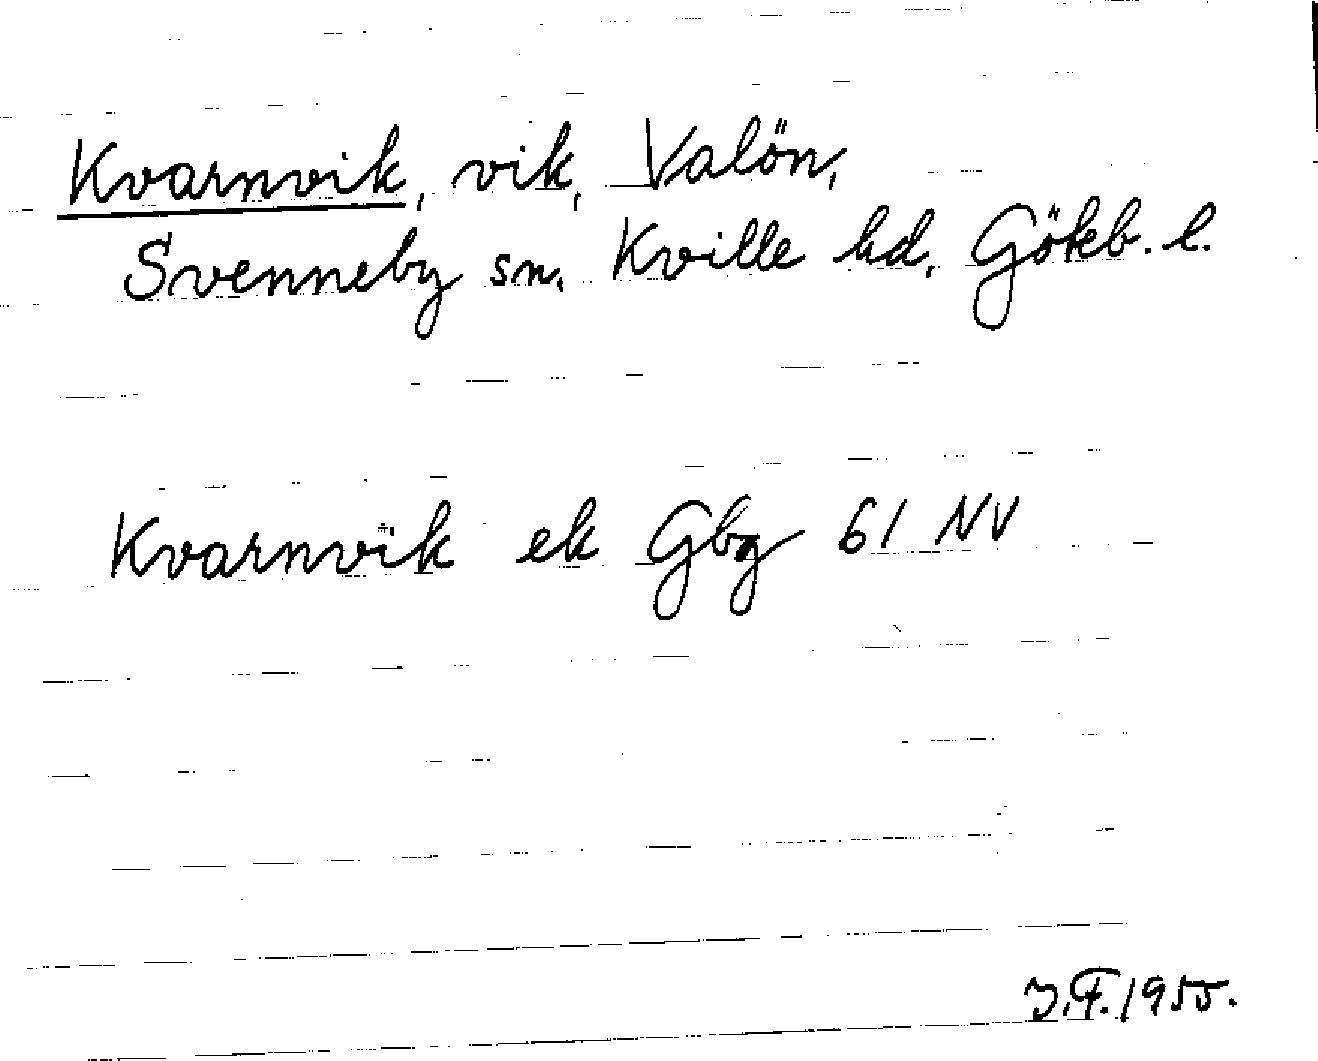 Kvarnvik, vik, Valön,
Svenneby sn, Kville hd, Göteb. l.
Kvarnvik ek Gbg 61 NV
J.F. 1955.